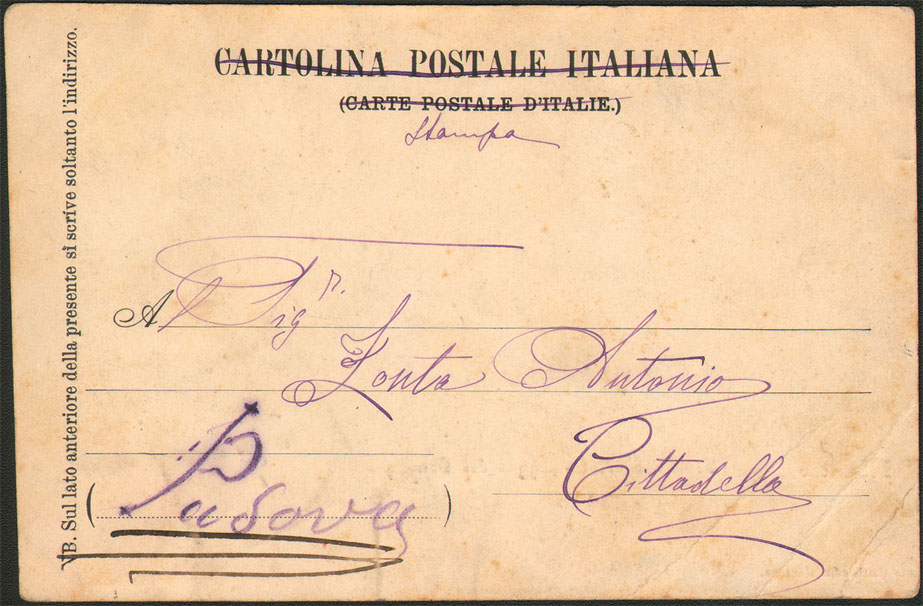 CARTOLINA POSTALE ITALIANA
(CARTE POSTALE D'ITALIE.)
Stampa
Al Sigr.
Zonta Antonio
Cittadella
(Padova)
NB. Sul lato anteriore della presente si scrive soltanto l'indirizzo.